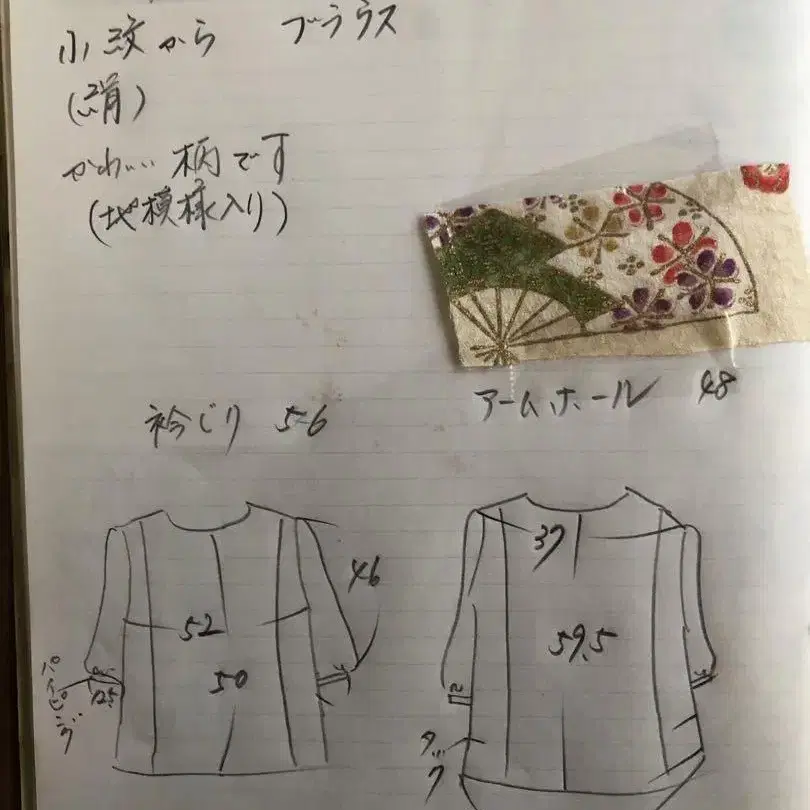 小紋から ブラウス
(絹)
かわいい柄です
(地模様入り)
衿ぐり 56
アームホール 48
46
52
50
パイピング
37
59.5
タック